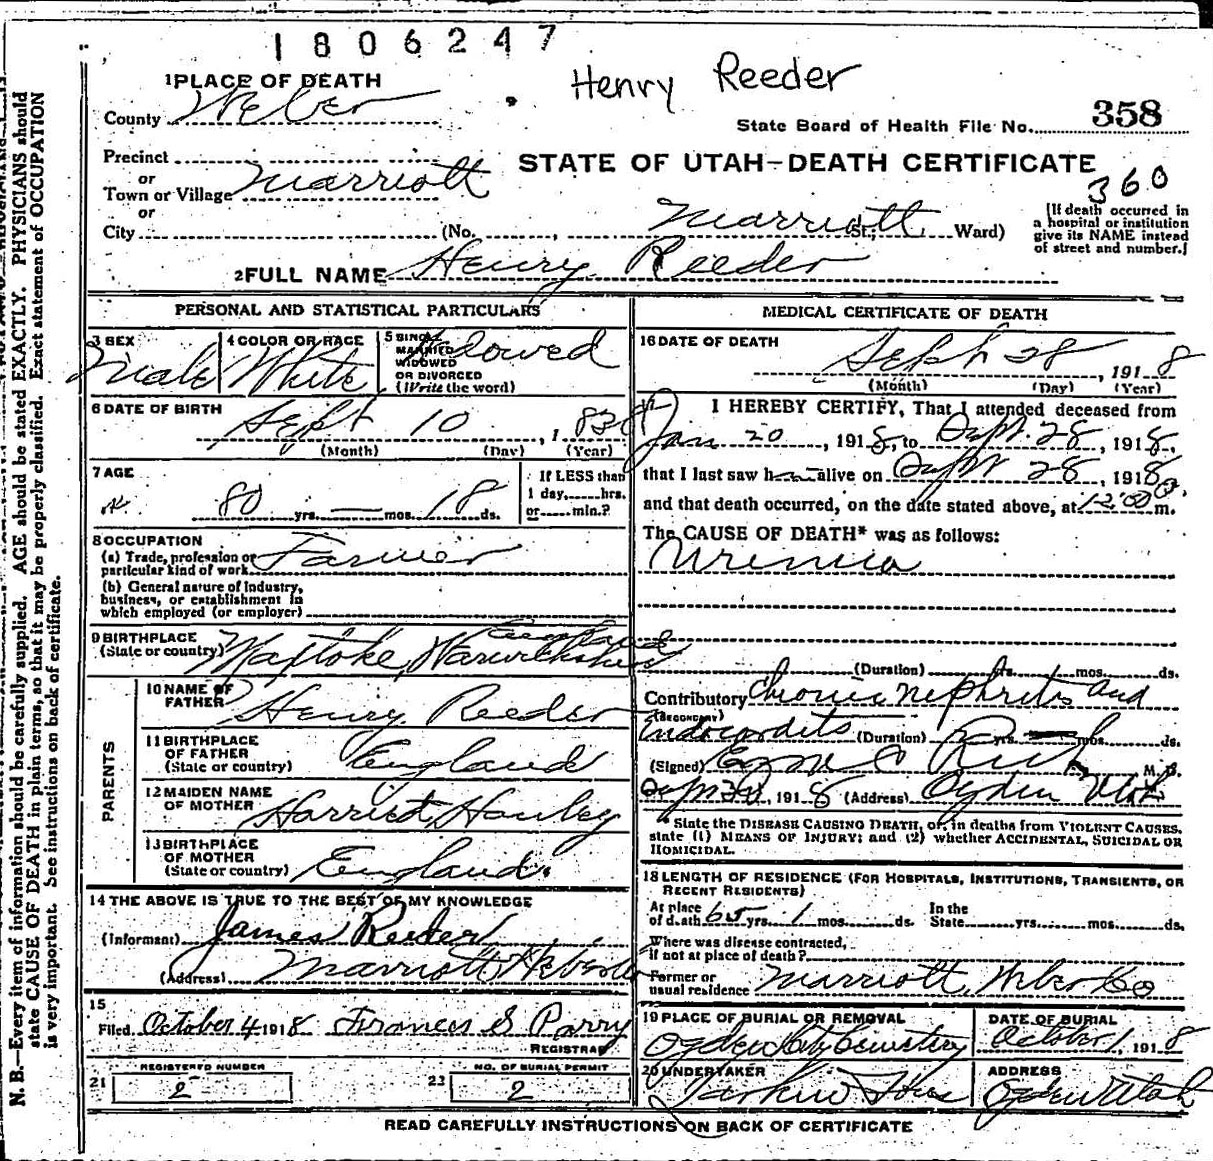 1806247
Henry Reeder
1 PLACE OF DEATH
County Weber
State Board of Health File No. 358
Precinct
or
Town or Village Marriott
or
City (No. , Marriott St; Ward)
STATE OF UTAH—DEATH CERTIFICATE
360
[If death occurred in
a hospital or institution
give its NAME instead
of street and number.]
2 FULL NAME Henry Reeder
PERSONAL AND STATISTICAL PARTICULARS
3 SEX Male
4 COLOR OR RACE White
5 SINGLE
MARRIED
WIDOWED
OR DIVORCED
(Write the word)
6 DATE OF BIRTH
Sept 10, 1838
(Month) (Day) (Year)
7 AGE
80 yrs. — mos. 18 ds.
If LESS than
1 day, hrs.
or min.?
8 OCCUPATION
(a) Trade, profession or
particular kind of work Farmer
(b) General nature of industry,
business, or establishment in
which employed (or employer)
9 BIRTHPLACE
(State or country) Maxtoke, Warwickshire England
PARENTS
10 NAME OF
FATHER Henry Reeder
11 BIRTHPLACE
OF FATHER
(State or country) England
12 MAIDEN NAME
OF MOTHER Harriet
13 BIRTHPLACE
OF MOTHER
(State or country) England.
14 THE ABOVE IS TRUE TO THE BEST OF MY KNOWLEDGE
(Informant) James Reeder
(Address) Marriott Weber Co
15
Filed October 4 1918 Francis S Parry
REGISTRAR
21 REGISTERED NUMBER
2
23 NO. OF BURIAL PERMIT
2
MEDICAL CERTIFICATE OF DEATH
16 DATE OF DEATH
Sept 28, 1918
(Month) (Day) (Year)
17 I HEREBY CERTIFY, That I attended deceased from
Jan 20, 1918, to Sept. 28, 1918,
that I last saw h alive on Sept 28 1918
and that death occurred, on the date stated above, at m.
The CAUSE OF DEATH* was as follows:
Uremia
(Duration) yrs. 1 mos. ds.
Contributory Chronic nephritis and
(SECONDARY)
Endocarditis (Duration) yrs. mos. ds.
(Signed) Rich M. D.
1918 (Address) Ogden Utah
* State the DISEASE CAUSING DEATH, or, in deaths from VIOLENT CAUSES,
state (1) MEANS OF INJURY; and (2) whether ACCIDENTAL, SUICIDAL OR
HOMICIDAL.
18 LENGTH OF RESIDENCE (FOR HOSPITALS, INSTITUTIONS, TRANSIENTS, OR
RECENT RESIDENTS)
At place In the
of death 65 yrs. 1 mos. ds. State yrs. mos. ds.
Where was disease contracted,
if not at place of death?
Former or
usual residence Marriott, Weber Co
19 PLACE OF BURIAL OR REMOVAL
Ogden City Cemetery
DATE OF BURIAL
October 1, 1918
20 UNDERTAKER
Larkin
ADDRESS
Ogden Utah
READ CAREFULLY INSTRUCTIONS ON BACK OF CERTIFICATE
N. B.—Every item of information should be carefully supplied. AGE should be stated EXACTLY. PHYSICIANS should
state CAUSE OF DEATH in plain terms, so that it may be properly classified. Exact statement of OCCUPATION
is very important. See instructions on back of certificate.